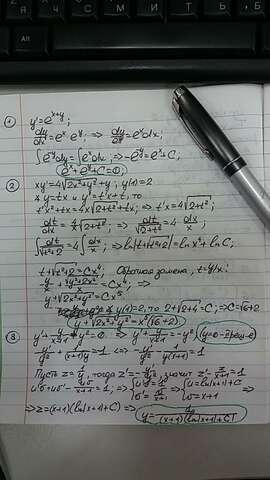 ① y'=e^{x+y};
dy/dx=e^x·e^y; ⇒ dy/e^y=e^x dx;
∫e^{-y}dy=∫e^x dx; ⇒ -e^{-y}=e^x+C;
e^x+e^{-y}+C=0;
② xy'=4√(2x²+y²)+y; y(1)=2
y=tx и y'=t'x+t, то
t'x²+tx=4x√(2+t²)+tx; ⇒ t'x=4√(2+t²);
x dt/dx=4√(2+t²); ⇒ dt/√(2+t²)=4 dx/x;
∫dt/√(t²+2)=4∫dx/x; ⇒ ln|t+√(t²+2)|=ln x⁴+ln C,
t+√(t²+2)=Cx⁴, Обратная замена, t=y/x:
y/x+√(y²+2x²)/x=Cx⁴; ⇒
y+√(2x²+y²)=Cx⁵
y(1)=2, то 2+√(2+4)=C;⇒C=√6+2
y+√(2x²+y²)=x⁵(√6+2)
③ y'+y/(x+1)+y²=0. ⇒ y'+y/(x+1)=-y² (y=0-решение)
-y'/y²-1/((x+1)y)=1 ⇔ -y'/y²-1/(y(x+1))=1
Пусть z=1/y, тогда z'=-y'/y², значит z'-z/(x+1)=1
u'v+uv'-uv/(x+1)=1; ⇒ {u'v=1 ⇒ {u=ln|x+1|+C ⇒
v=x+1
⇒z=(x+1)(ln|x+1|+C) ⇒ y=1/((x+1)(ln|x+1|+C))